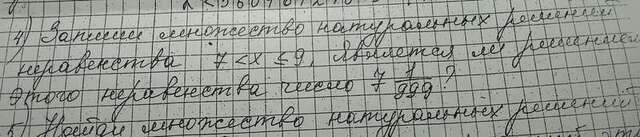 4) Запиши множество натуральных решений
неравенства 7 < x ≤ 9, является ли решением
этого неравенства число 7 1/999 ?
5) Найди множество натуральных решений